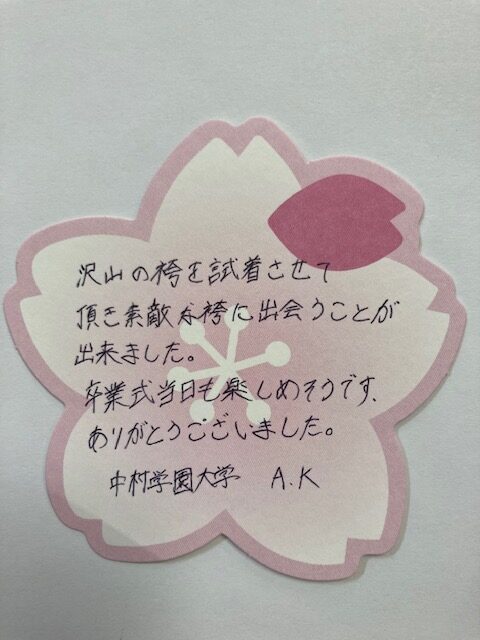 沢山の袴を試着させて
頂き素敵な袴に出会うことが
出来ました。
卒業式当日も楽しめそうです、
ありがとうございました。
中村学園大学 A.K